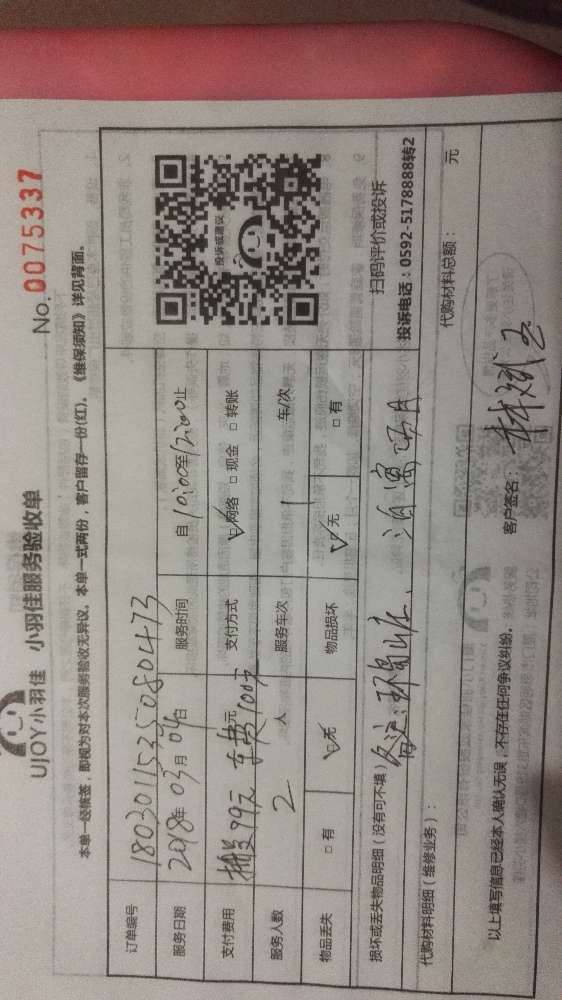 UJOY小羽佳 小羽佳服务验收单
No. 0075337
本单一经核签，即视为对本次服务验收无异议。本单一式两份，客户留存一份(红)。《维保须知》详见背面。
订单编号 180301153508047​3
服务日期 2018年 03月 04日 服务时间 自 10:00至12:00止
支付费用 99元 车费100元 元 支付方式 ☑网络 □ 现金 □ 转账
服务人数 2 人 服务车次 1 车/次
物品丢失 □ 有 ☑无 物品损坏 ☑无 □ 有
投诉或建议
扫码评价或投诉
投诉电话：0592-5178888转2
损坏或丢失物品明细（没有可不填） 备注：
代购材料明细（维修业务）： 代购材料总额： 元
以上填写信息已经本人确认无误，不存在任何争议纠纷。 客户签名：